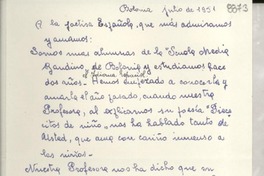 Bolonia julio de 1951
8873
A la poetisa Española, que más admiramos
y amamos:
Somos unas alumnas de la "Scuola Media
Zandino, de Bolonia y estudiamos hace
el idioma español
dos años. Hemos empezado a conocerla y
amarla el año pasado, cuando nuestra
Profesora, al explicarnos su poesía "Piece
citos de niño", nos ha hablado tanto de
Usted, que ama con cariño inmenso a
las niñas.
Nuestra Profesora nos ha dicho que un